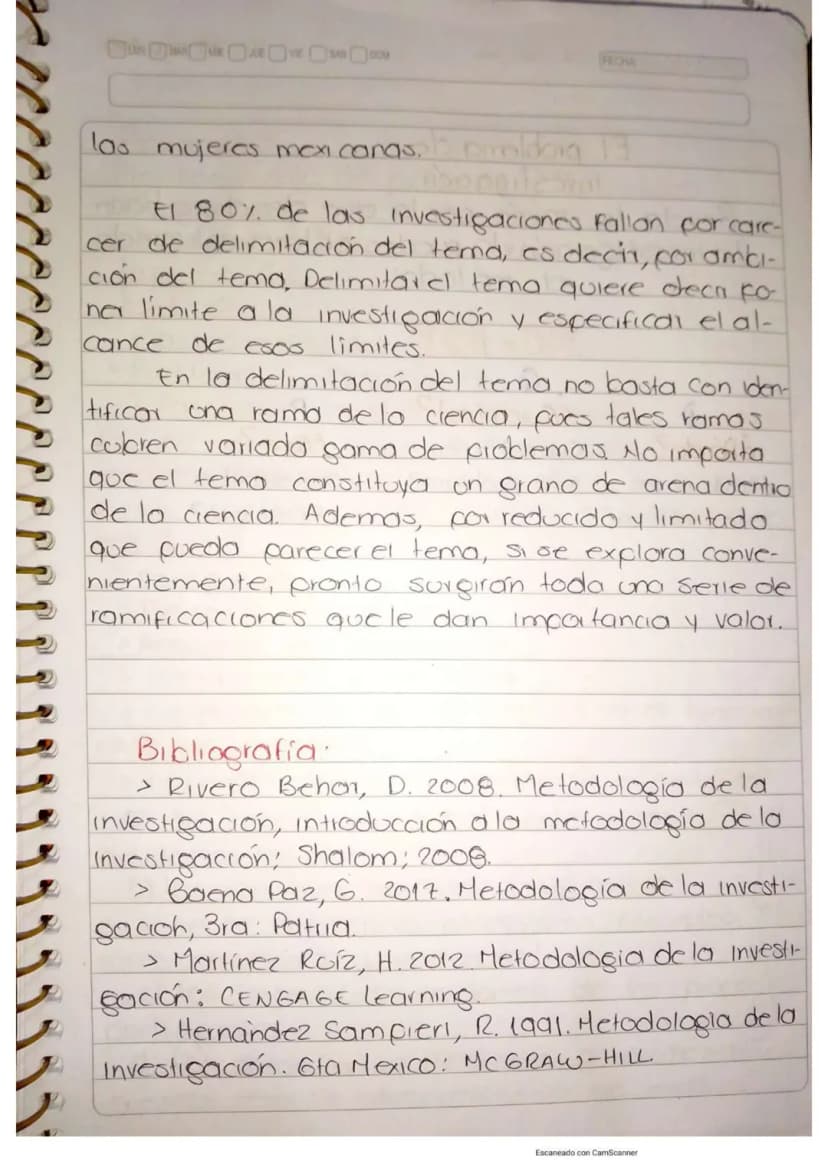 LUN MAR MIE JUE VIE SAB DOM
FECHA
las mujeres mexicanas.
El 80% de las investigaciones fallan por care-
cer de delimitación del tema, es decir, por ambi-
ción del tema. Delimitar el tema quiere decir po-
ner límite a la investigación y especificar el al-
cance de esos límites.
En la delimitación del tema no basta con iden-
tificar una rama de la ciencia, pues tales ramas
cubren variada gama de problemas. No importa
que el tema constituya un grano de arena dentro
de la ciencia. Ademas, por reducido y limitado
que pueda parecer el tema, si se explora conve-
nientemente, pronto surgirán toda una serie de
ramificaciones que le dan importancia y valor.
Bibliografía.
> Rivero Behar, D. 2008. Metodología de la
investigación, introducción a la metodología de la
investigación; Shalom; 2008.
> Baena Paz, G. 2017. Metodología de la investi-
gación, 3ra: Patria.
> Martínez Ruíz, H. 2012. Metodologia de la Investi-
gación: CENGAGE Learning.
> Hernández Sampieri, R. 1991. Metodologia de la
Investigación. 6ta Mexico: MC GRAW-HILL
Escaneado con CamScanner